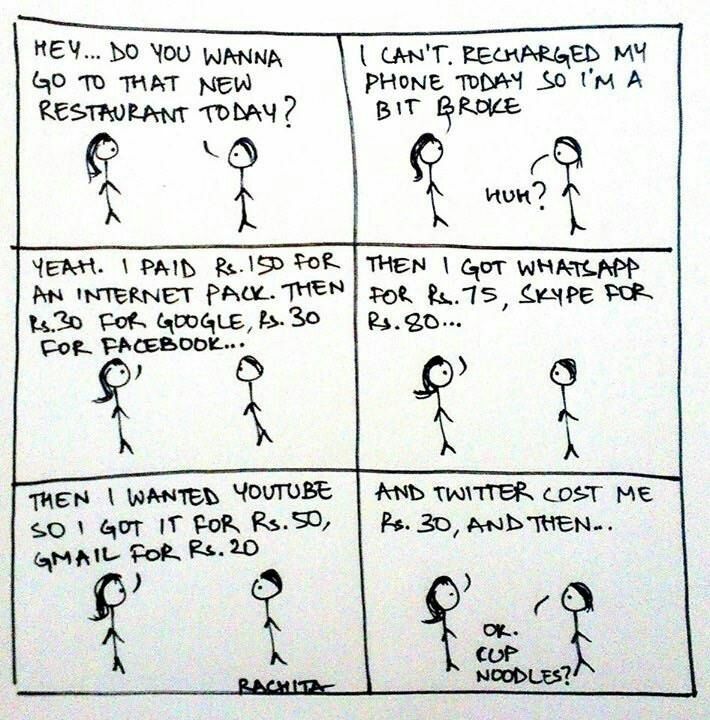 HEY... DO YOU WANNA
GO TO THAT NEW
RESTAURANT TODAY?
I CAN'T. RECHARGED MY
PHONE TODAY SO I'M A
BIT BROKE
HUH?
YEAH. I PAID Rs.150 FOR
AN INTERNET PACK. THEN
Rs.30 FOR GOOGLE, Rs.30
FOR FACEBOOK...
THEN I GOT WHATSAPP
FOR Rs.75, SKYPE FOR
Rs.80...
THEN I WANTED YOUTUBE
SO I GOT IT FOR Rs.50,
GMAIL FOR Rs.20
AND TWITTER COST ME
Rs.30, AND THEN...
OK.
CUP
NOODLES?
RACHITA